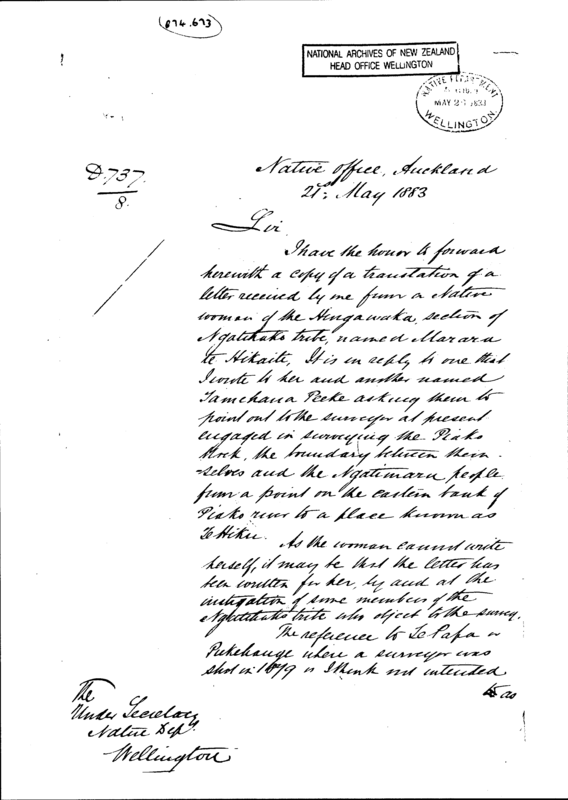 (874.673)
NATIONAL ARCHIVES OF NEW ZEALAND
HEAD OFFICE WELLINGTON
NATIVE DEPARTMENT
MAY 2 1883
WELLINGTON
D. 737.
8.
Native Office, Auckland
21st May 1883
Sir
I have the honor to forward
herewith a copy of a translation of a
letter received by me from a Native
woman of the Hingawaka, section of
Ngatihako tribe, named Marara
te Hikaite, It is in reply to one that
I wrote to her and another named
Tamehana Peeke asking them to
point out to the surveyor at present
engaged in surveying the Piako
Block, the boundary between them-
=selves and the Ngatimaru people
from a point on the eastern bank of
Piako river to a place known as
Te Hiku.
As the woman cannot write
herself, it may be that the letter has
been written for her, by and at the
instigation of some members of the
Ngatihako tribe who object to the survey.
The reference to Te Papa or
Pukehange where a surveyor was
shot in 1879 is I think not intended
as
The
Under Secretary
Native Dept.
Wellington